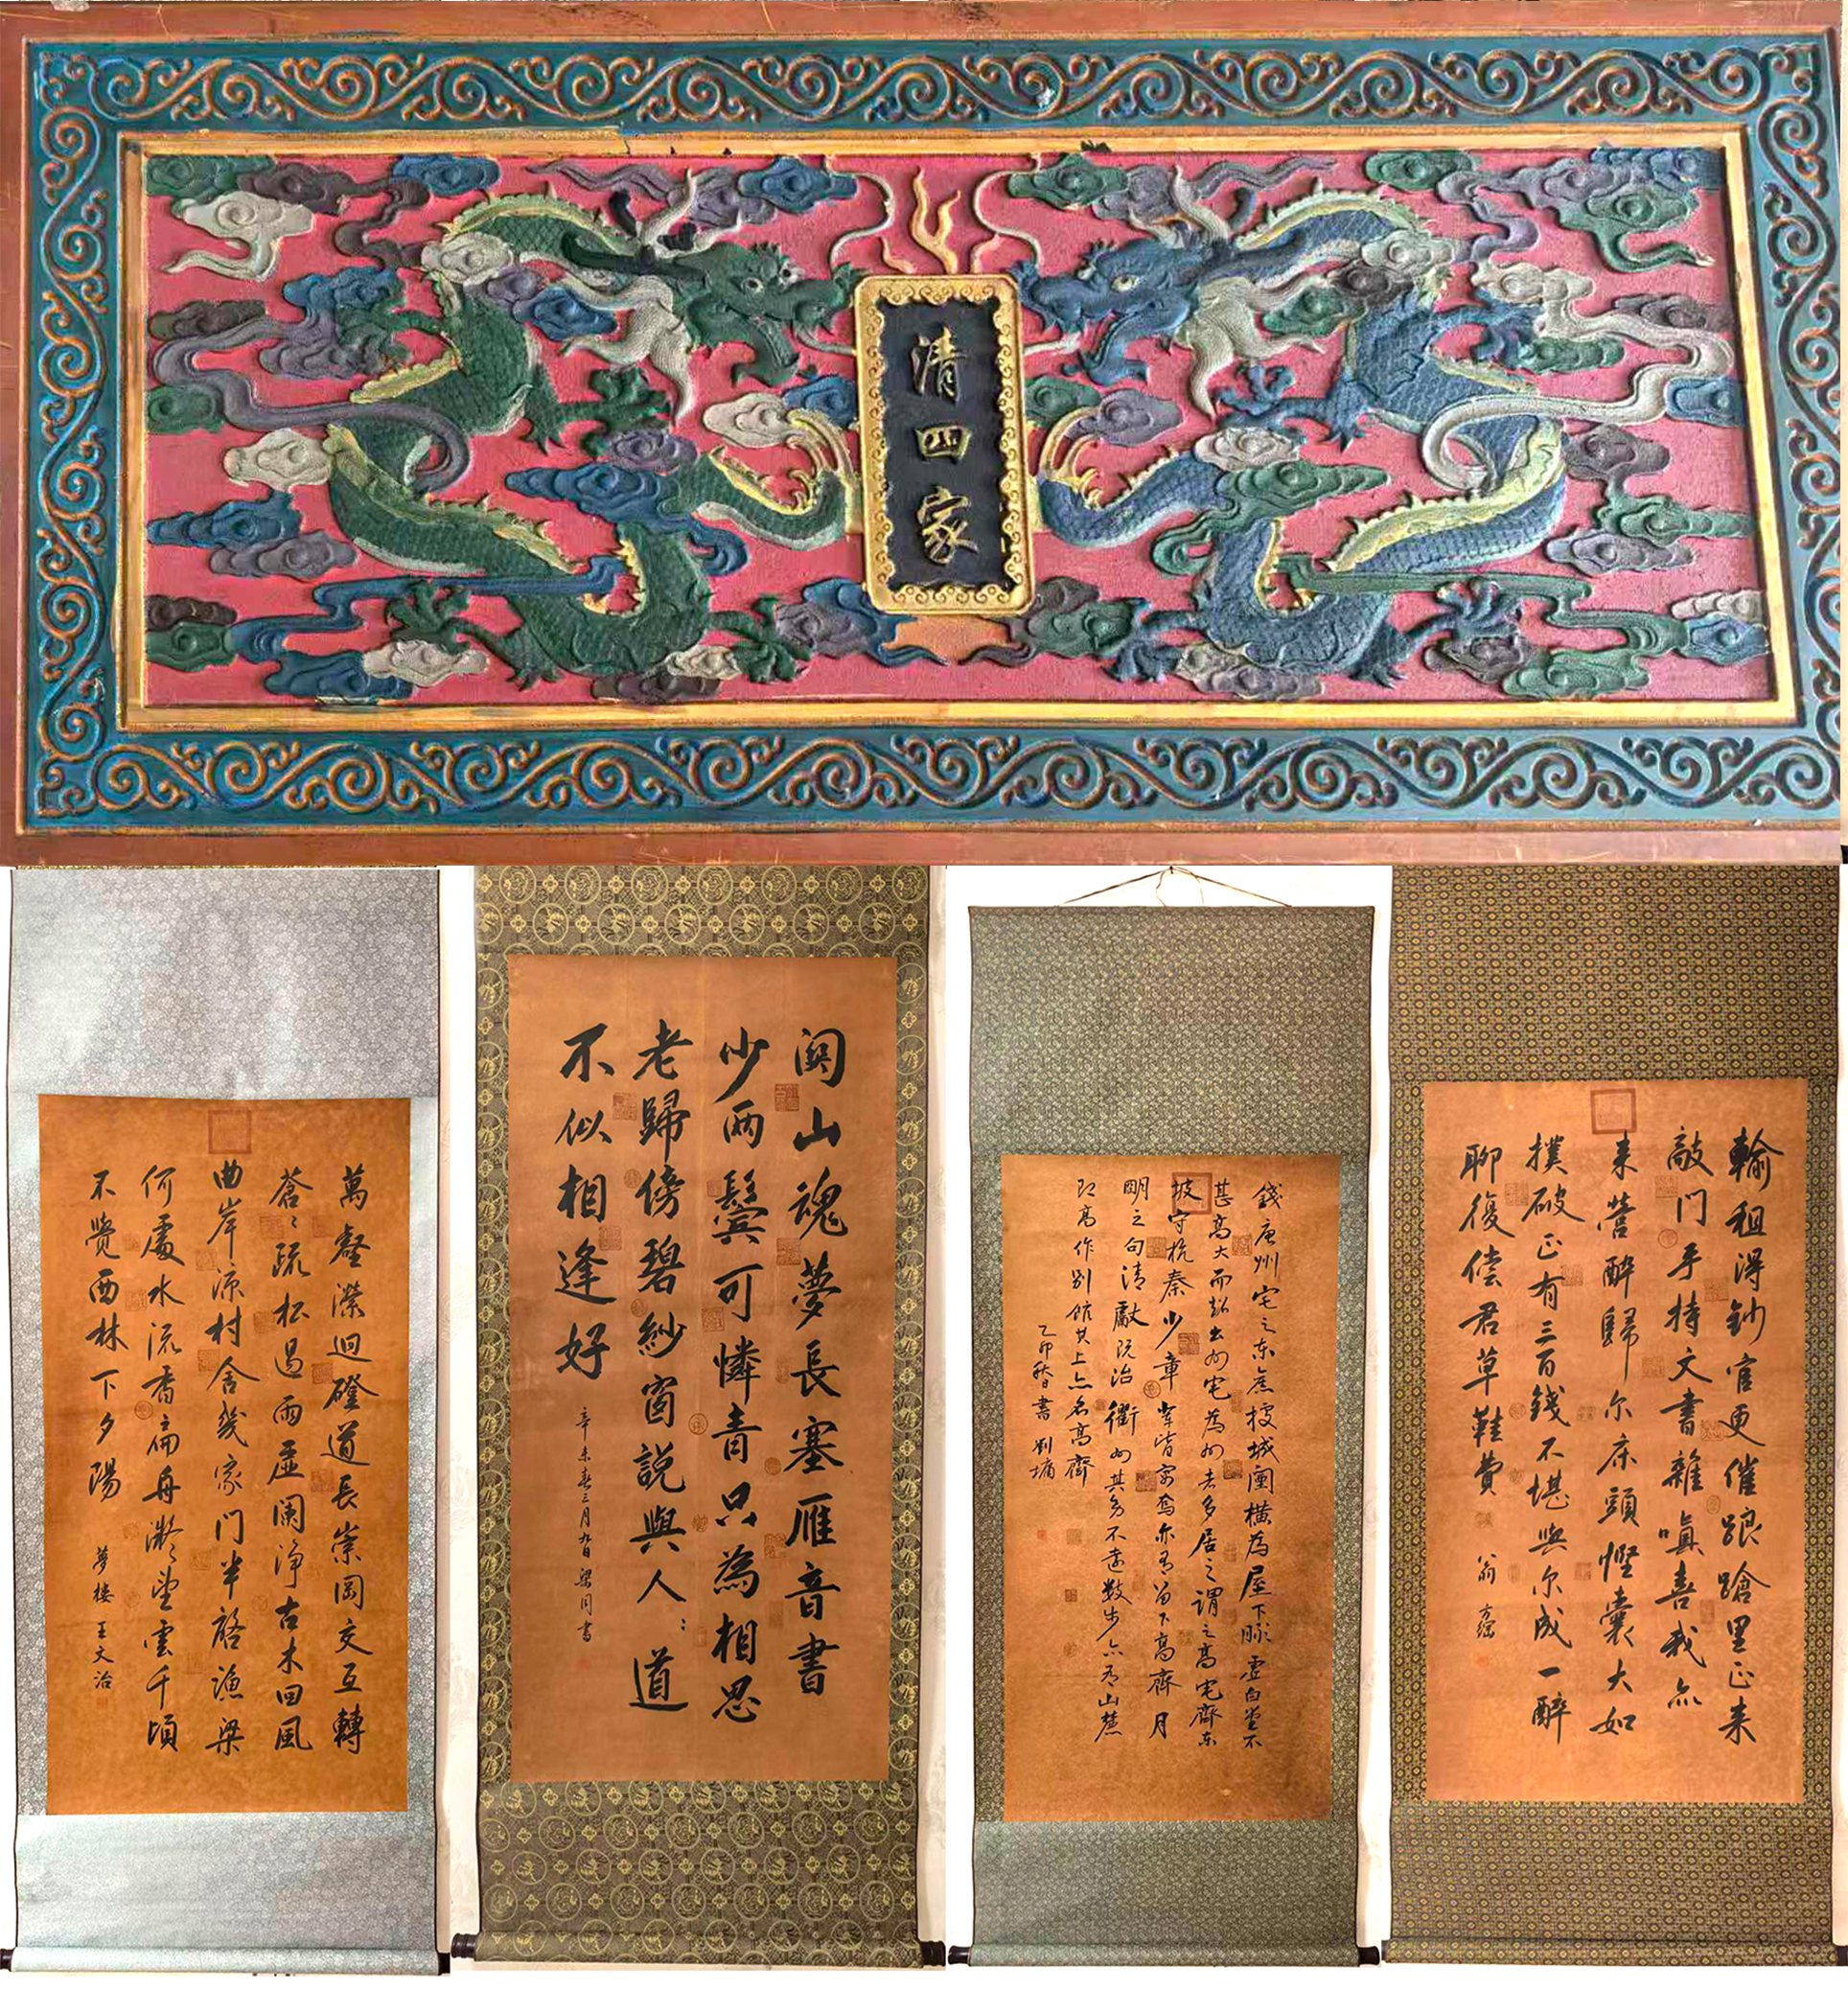 清四家
輸租得鈔官更催踉蹌里正来
敲门手持文書雜嗔喜我亦
来營醉歸尔床頭慳囊大如
撲破正有三百錢不堪與尔成一醉
聊復償君草鞋費
翁方綱
錢唐州宅之东按城闉横為屋下瞰虚白堂不
甚高大而超出州宅為州者多居之谓之高宅齋东
坡守杭秦少章輩皆寓焉亦有留下高齋月
明之句清獻既治衢州其多不遠數步亦有山麓
即高作别館其上亦名高齋
乙卯秋日書 劉墉
関山魂夢長塞雁音書
少兩鬢可憐青只為相思
老歸傍碧紗窗説與人：道
不似相逢好
辛未春三月九日 梁同書
萬壑瀠迴磴道長崇岡交互轉
蒼：疏松過雨虚阑淨古木回風
曲岸凉村舍幾家门半啓漁梁
何處水流香扁舟凝：望雲千頃
不覺西林下夕陽
夢楼 王文治